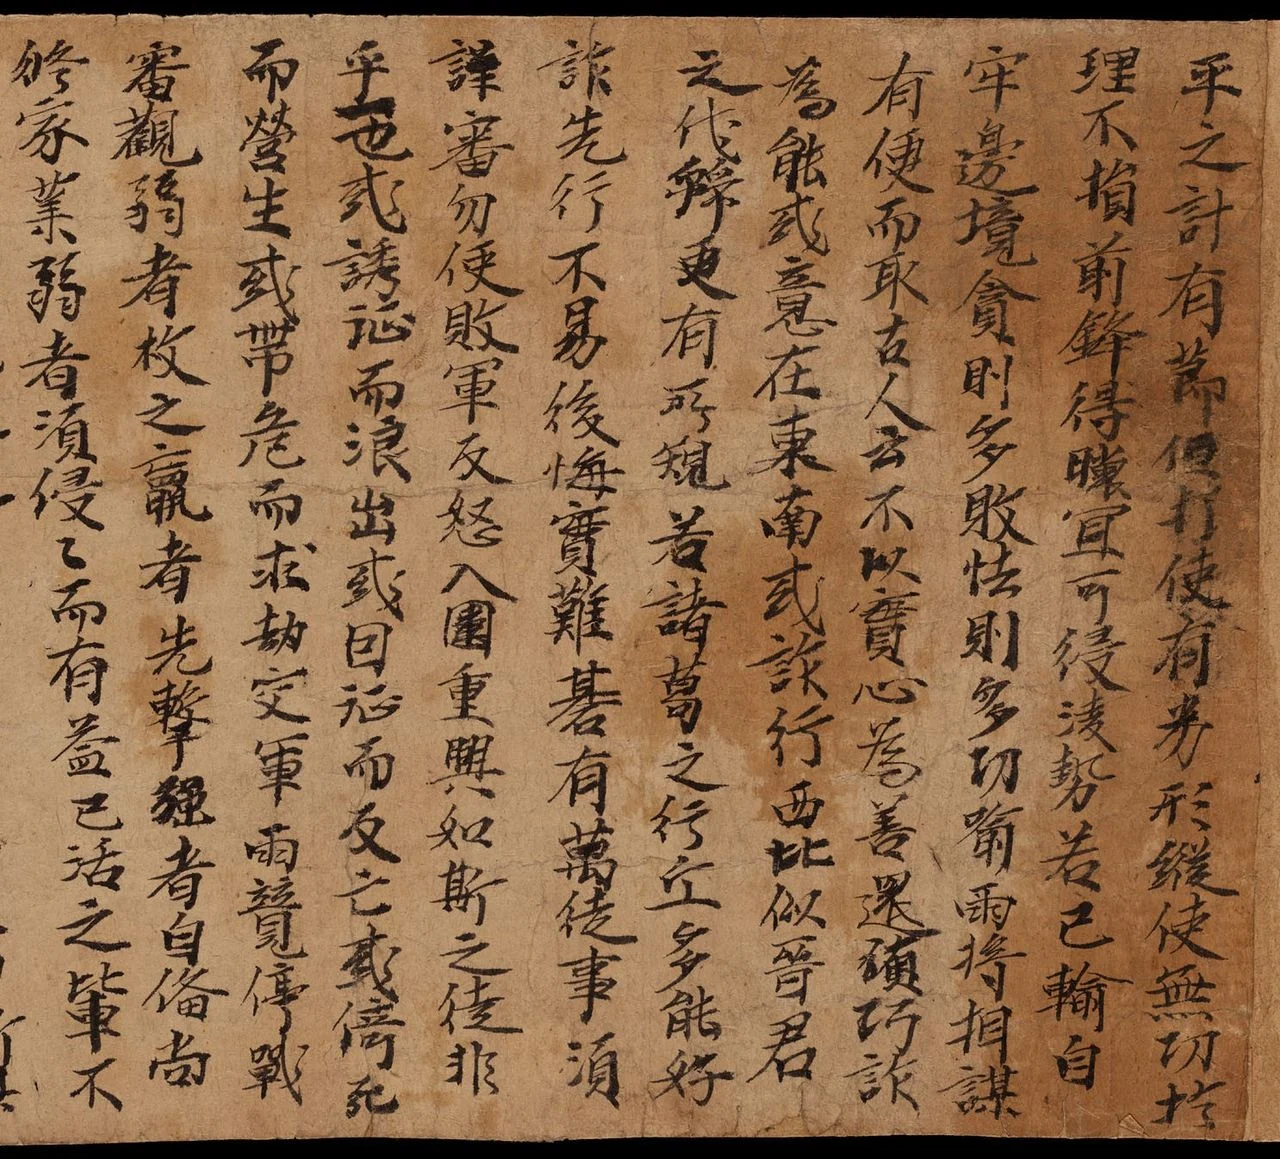 平之計有節但打使有劣形縱使無功於
理不損前鋒得暕宜可侵淩勢若已輸自
牢邊境貪則多敗怯則多功喻兩將相謀
有便而取古人云不以實心為善還須巧詐
為能或意在東南或詐行西北似晉君
之伐虢更有所規若諸葛之行丘多能好
詐先行不易後悔實難碁有萬徒事須
謹審勿使敗軍反怒入圍重興如斯之徒非
乎一也或誘征而浪出或因征而反亡或倚死
而營生或帶危而求劫交軍兩競停戰
審觀弱者枚之羸者先擊強者自俻尚
修家業弱者須侵〻而有益已活之輩不